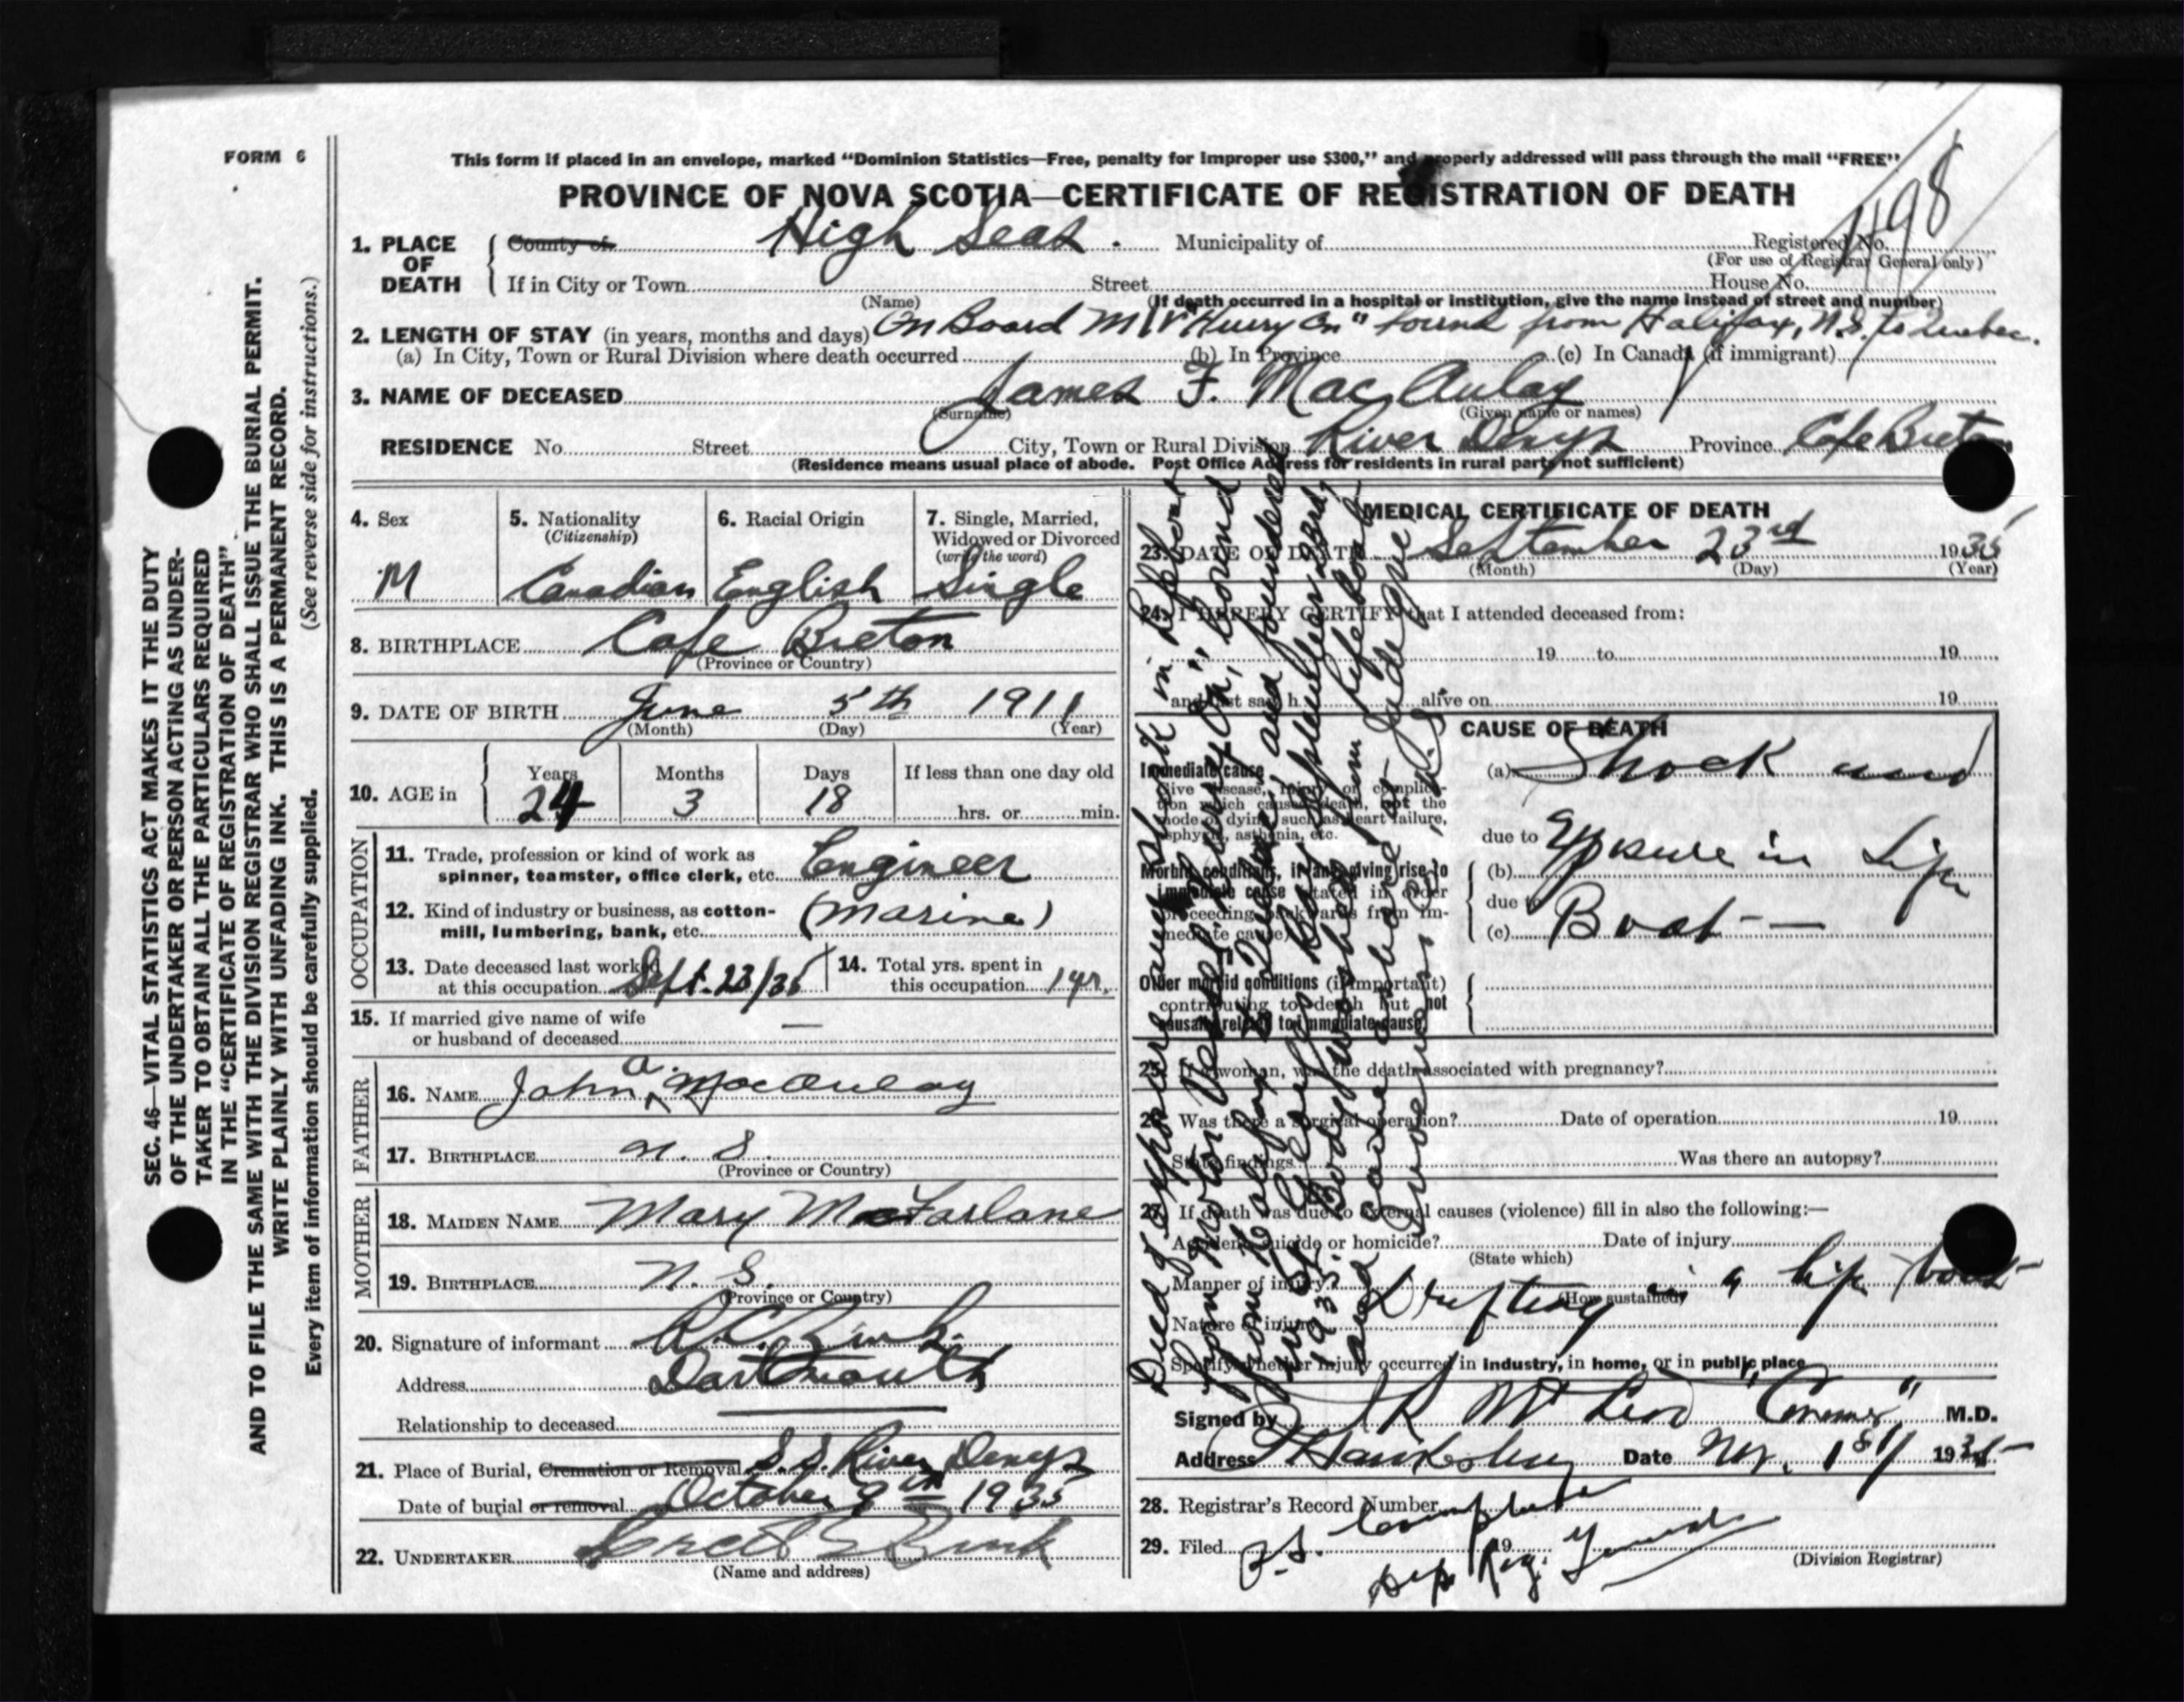 FORM 6
This form if placed in an envelope, marked “Dominion Statistics—Free, penalty for improper use $300,” and properly addressed will pass through the mail “FREE”
PROVINCE OF NOVA SCOTIA—CERTIFICATE OF REGISTRATION OF DEATH
1. PLACE OF DEATH
County of High Seas. Municipality of Registered No. 1198
(For use of Registrar General only)
If in City or Town Street House No.
(Name) (If death occurred in a hospital or institution, give the name instead of street and number)
2. LENGTH OF STAY (in years, months and days) On Board M/V "Hurry On" bound from Halifax, N.S. to Quebec.
(a) In City, Town or Rural Division where death occurred (b) In Province (c) In Canada (if immigrant)
3. NAME OF DECEASED James F. MacAulay
(Surname) (Given name or names)
RESIDENCE No. Street City, Town or Rural Division River Denys Province Cape Breton
(Residence means usual place of abode. Post Office Address for residents in rural parts not sufficient)
4. Sex M
5. Nationality (Citizenship) Canadian
6. Racial Origin English
7. Single, Married, Widowed or Divorced (write the word) Single
8. BIRTHPLACE Cape Breton
(Province or Country)
9. DATE OF BIRTH June 5th 1911
(Month) (Day) (Year)
10. AGE in Years Months Days If less than one day old
24 3 18 hrs. or min.
OCCUPATION
11. Trade, profession or kind of work as
spinner, teamster, office clerk, etc. Engineer
12. Kind of industry or business, as cotton-
mill, lumbering, bank, etc. (Marine)
13. Date deceased last worked
at this occupation Sept. 23/35
14. Total yrs. spent in
this occupation 1 yr.
15. If married give name of wife
or husband of deceased —
FATHER
16. NAME John A. MacAulay
17. BIRTHPLACE N. S.
(Province or Country)
MOTHER
18. MAIDEN NAME Mary MacFarlane
19. BIRTHPLACE N. S.
(Province or Country)
20. Signature of informant
Address Dartmouth
Relationship to deceased
21. Place of Burial, Cremation or Removal S.S. River Denys
Date of burial or removal October 9th 1935
22. UNDERTAKER
(Name and address)
MEDICAL CERTIFICATE OF DEATH
23. DATE OF DEATH September 23rd 1935
(Month) (Day) (Year)
24. I HEREBY CERTIFY that I attended deceased from:
19 to 19
and last saw h alive on 19
CAUSE OF DEATH
Immediate cause
Give disease, injury or complica-
tion which caused death, not the
mode of dying, such as heart failure,
asphyxia, asthenia, etc.
(a) Shock and
due to Exposure in Life
Morbid conditions, if any, giving rise to
immediate cause (stated in order
proceeding backwards from im-
mediate cause)
(b)
due to
(c) Boat —
Other morbid conditions (if important)
contributing to death but not
causally related to immediate cause.
25. If a woman, was the death associated with pregnancy?
26. Was there a surgical operation? Date of operation 19
State findings Was there an autopsy?
27. If death was due to external causes (violence) fill in also the following:—
Accident, suicide or homicide? Date of injury
(State which)
Manner of injury? Drifting in a life boat
(How sustained)
Nature of injury
Specify whether injury occurred in industry, in home, or in public place
Signed by McLeod "Coroner" M.D.
Address Hawkesbury Date Nov. 1st 1935
28. Registrar's Record Number
29. Filed 19
(Division Registrar)
Died of exposure and shock in lifeboat
from Motor Vessel "Hurry On", bound
from Halifax to Quebec, and foundered
1935. Body washed from lifeboat
and came ashore at Judique,
Inverness Co., N.S.
SEC. 46—VITAL STATISTICS ACT MAKES IT THE DUTY
OF THE UNDERTAKER OR PERSON ACTING AS UNDER-
TAKER TO OBTAIN ALL THE PARTICULARS REQUIRED
IN THE “CERTIFICATE OF REGISTRATION OF DEATH”
AND TO FILE THE SAME WITH THE DIVISION REGISTRAR WHO SHALL ISSUE THE BURIAL PERMIT.
WRITE PLAINLY WITH UNFADING INK. THIS IS A PERMANENT RECORD.
Every item of information should be carefully supplied. (See reverse side for instructions.)